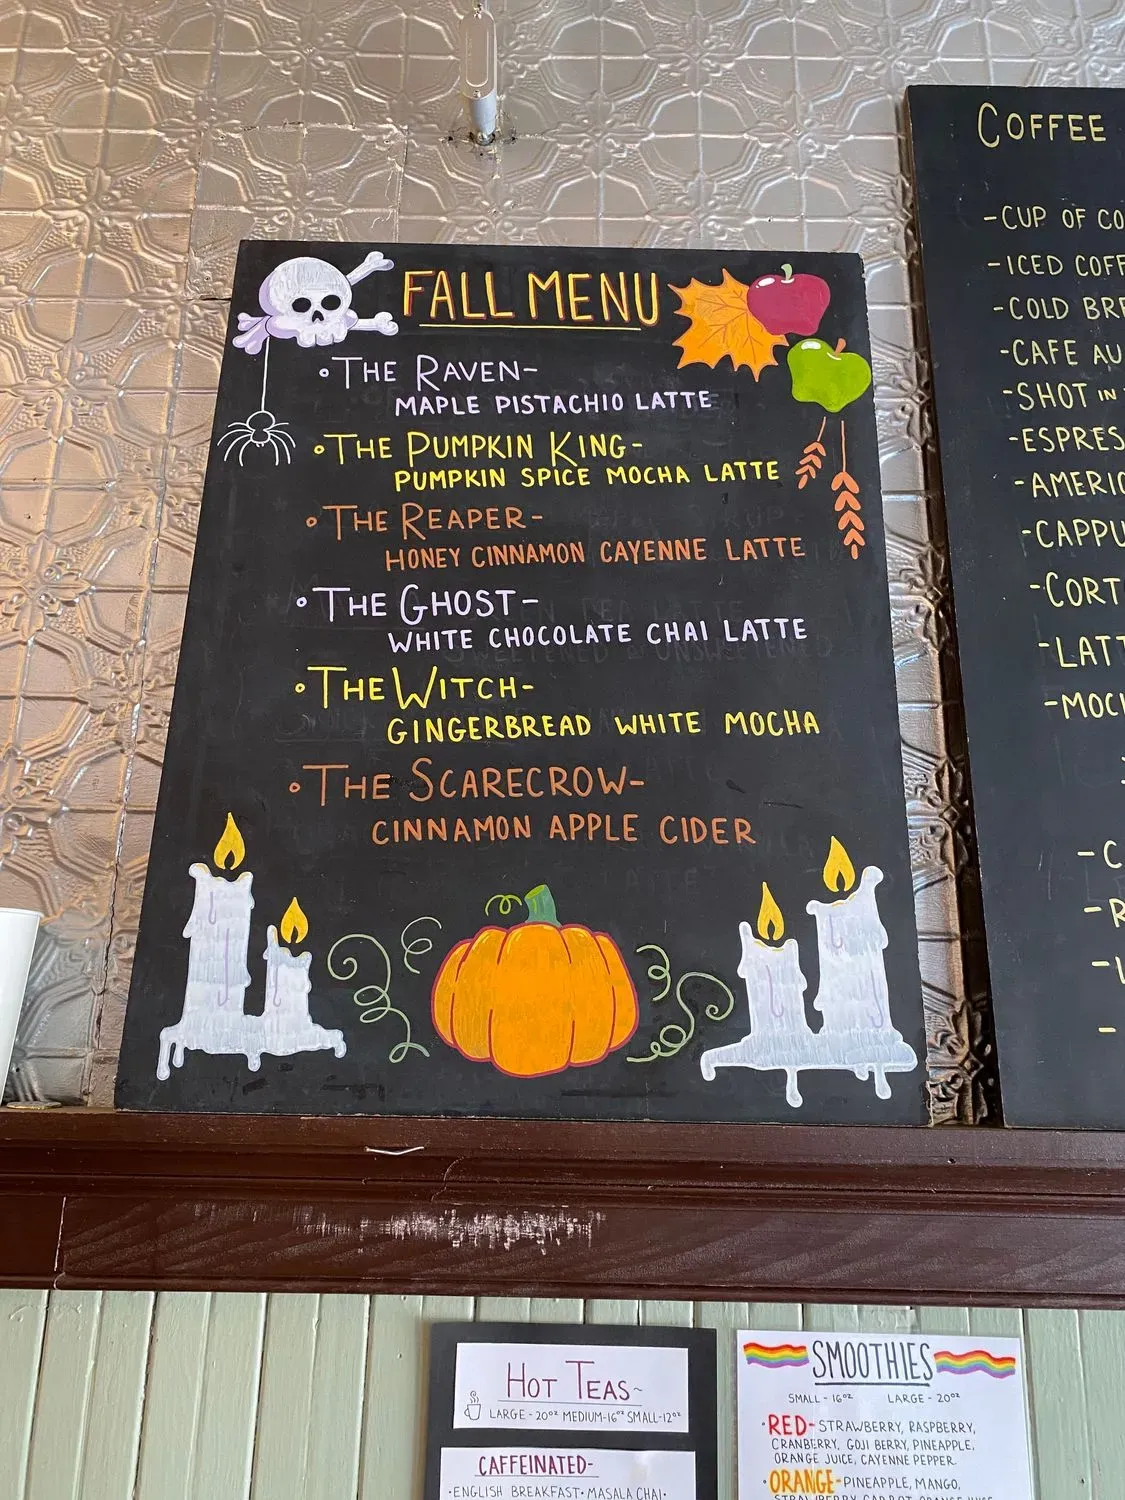 FALL MENU
•THE RAVEN-
MAPLE PISTACHIO LATTE
•THE PUMPKIN KING-
PUMPKIN SPICE MOCHA LATTE
•THE REAPER-
HONEY CINNAMON CAYENNE LATTE
•THE GHOST-
WHITE CHOCOLATE CHAI LATTE
•THE WITCH-
GINGERBREAD WHITE MOCHA
•THE SCARECROW-
CINNAMON APPLE CIDER
COFFEE
-CUP OF CO
-ICED COFF
-COLD BRE
-CAFE AU
-SHOT IN
-ESPRES
-AMERIC
-CAPPU
-CORT
-LATT
-MOC
-C
-R
HOT TEAS~
LARGE-20oz MEDIUM-16oz SMALL-12oz
CAFFEINATED-
•ENGLISH BREAKFAST•MASALA CHAI•
SMOOTHIES
SMALL-16oz LARGE-20oz
•RED-STRAWBERRY, RASPBERRY,
CRANBERRY, GOJI BERRY, PINEAPPLE,
ORANGE JUICE, CAYENNE PEPPER
•ORANGE-PINEAPPLE, MANGO,
STRAWBERRY, CARROT, ORANGE JUICE